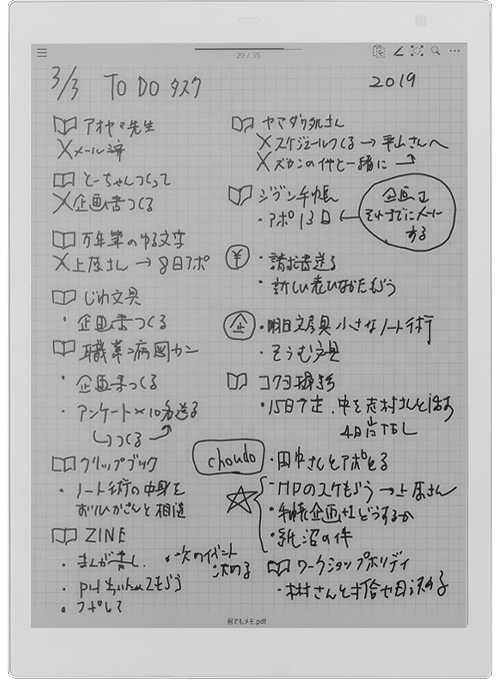 29 / 35
3/3 TO DO タスク
2019
アオヤマ先生
メール済
とーちゃんつくって
企画書つくる
万年筆のゆる文字
上原さん → 8日アポ
じわ文具
・企画書つくる
職業病図カン
・企画書つくる
・アンケート×10名送る
つくる
クリップブック
・ノート術の中身を
おりひかさんと相違
ZINE
・まんが書し
・次のイベント
決める
ヤマダワタルさん
スケジュールつくる → 平山さんへ
ズカンの件と一緒に
ジブン手帳
・アポ13日
企画立
それまでにメールする
¥
・請求書送る
・新しい表いながたもらう
企
・明日文房具 小さなノート術
・そうむ文具
コクヨ
・15日予定、中を志村さんと話す
4日
choudo
・田中さんとアポとる
・MDのスケもらう → 上原さん
・手帳企画+1どうするか
・乳沼の件
ワークショップホリデイ
何でもメモ.pdf